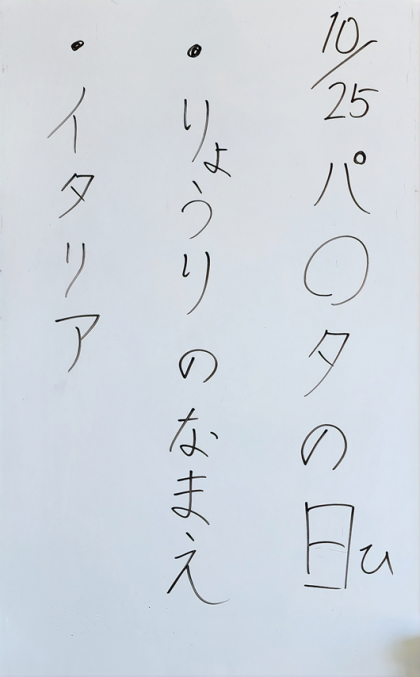 10/25 パ〇タの日ひ
・りょうりのなまえ
・イタリア